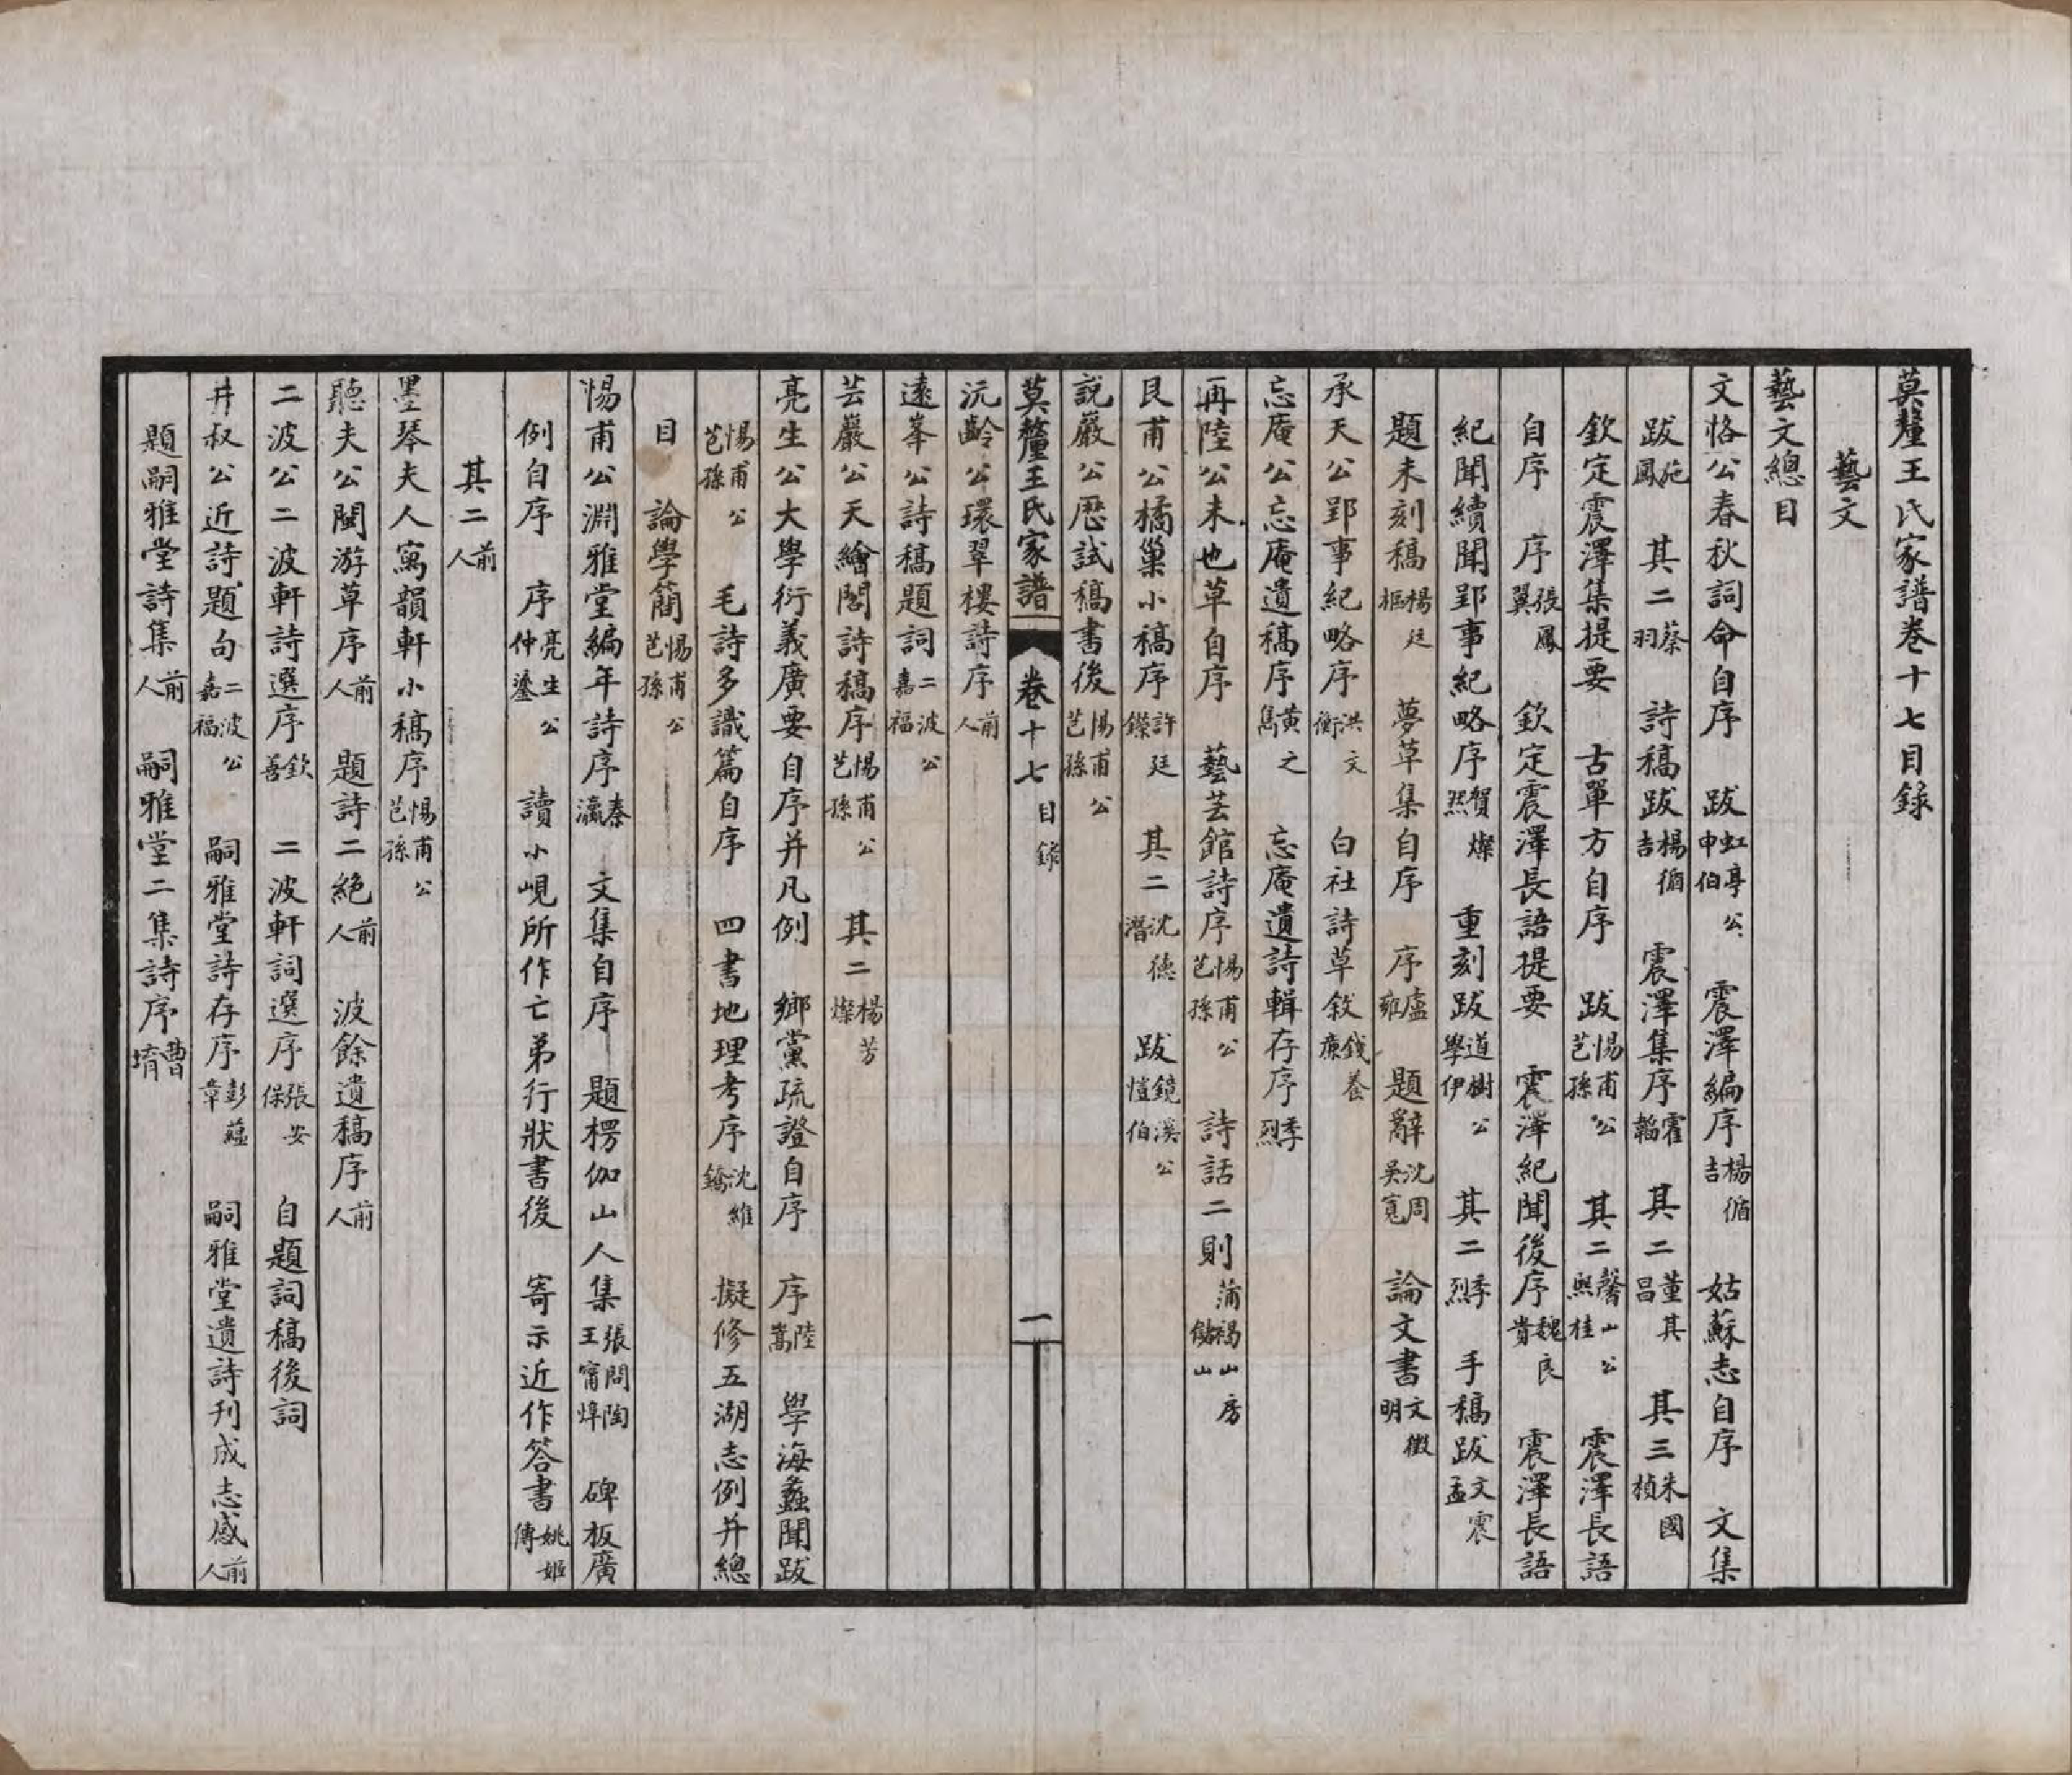 莫釐王氏家譜卷十七目錄
藝文
藝文總目
文恪公春秋詞命自序　跋虹亭公申伯　震澤編序楊循吉　姑蘇志自序　文集
跋施鳳　其二蔡羽　詩稿跋楊循吉　震澤集序霍韜　其二董其昌　其三朱國楨
欽定震澤集提要　古單方自序　跋惕甫公芑孫　其二馨山公熙桂　震澤長語
自序　序張鳳翼　欽定震澤長語提要　震澤紀聞後序魏良貴　震澤長語
紀聞續聞郢事紀略序賀燦然　重刻跋道樹公學伊　其二季烈　手稿跋文震孟
題未刻稿楊廷樞　夢草集自序　序盧雍　題辭沈周吳寬　論文書文徵明
承天公郢事紀略序洪文衡　白社詩草敘錢養廉
忘庵公忘庵遺稿序黃之雋　忘庵遺詩輯存序季烈
再陸公未也草自序　藝芸館詩序惕甫公芑孫　詩話二則蒲褐山房餂山
艮甫公橘巢小稿序許廷鑅　其二沈德潛　跋鏡溪公愷伯
說巖公歷試稿書後惕甫公芑孫
莫釐王氏家譜　卷十七　目錄　一
沅齡公環翠樓詩序前人
遠峯公詩稿題詞二波公嘉福
芸巖公天繪閣詩稿序惕甫公芑孫　其二楊芳燦
亮生公大學衍義廣要自序并凡例　鄉黨疏證自序　序陸嵩　學海蠡聞跋
惕甫公芑孫　毛詩多識篇自序　四書地理考序沈維鐈　擬修五湖志例并總
目　論學簡惕甫公芑孫
惕甫公淵雅堂編年詩序秦瀛　文集自序　題楞伽山人集張問陶王甯焯　碑板廣
例自序　序亮生公仲鎏　讀小峴所作亡弟行狀書後　寄示近作答書姚姬傳
其二前人
墨琴夫人寫韻軒小稿序惕甫公芑孫
聽夫公閩游草序前人　題詩二絕前人　波餘遺稿序前人
二波公二波軒詩選序欽善　二波軒詞選序張安保　自題詞稿後詞
井叔公近詩題句二波公嘉福　嗣雅堂詩存序彭蘊章　嗣雅堂遺詩刊成志感前人
題嗣雅堂詩集前人　嗣雅堂二集詩序曹堉